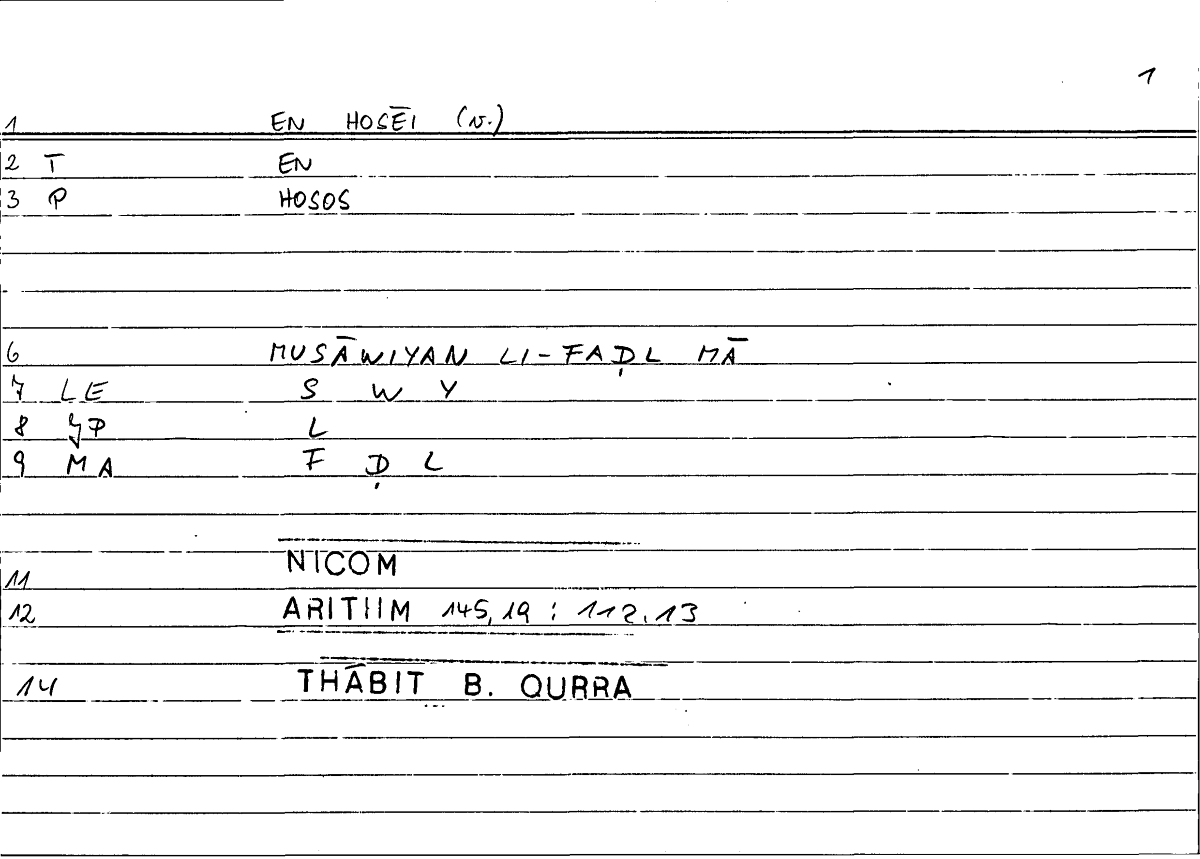 1
1 EN HOSĒI (v.)
2 T EN
3 P HOSOS
6 MUSĀWIYAN LI-FAḌL MĀ
7 LE S W Y
8 JP L
9 MA F Ḍ L
11 NICOM
12 ARITHM 145,19 : 112.13
14 THĀBIT B. QURRA